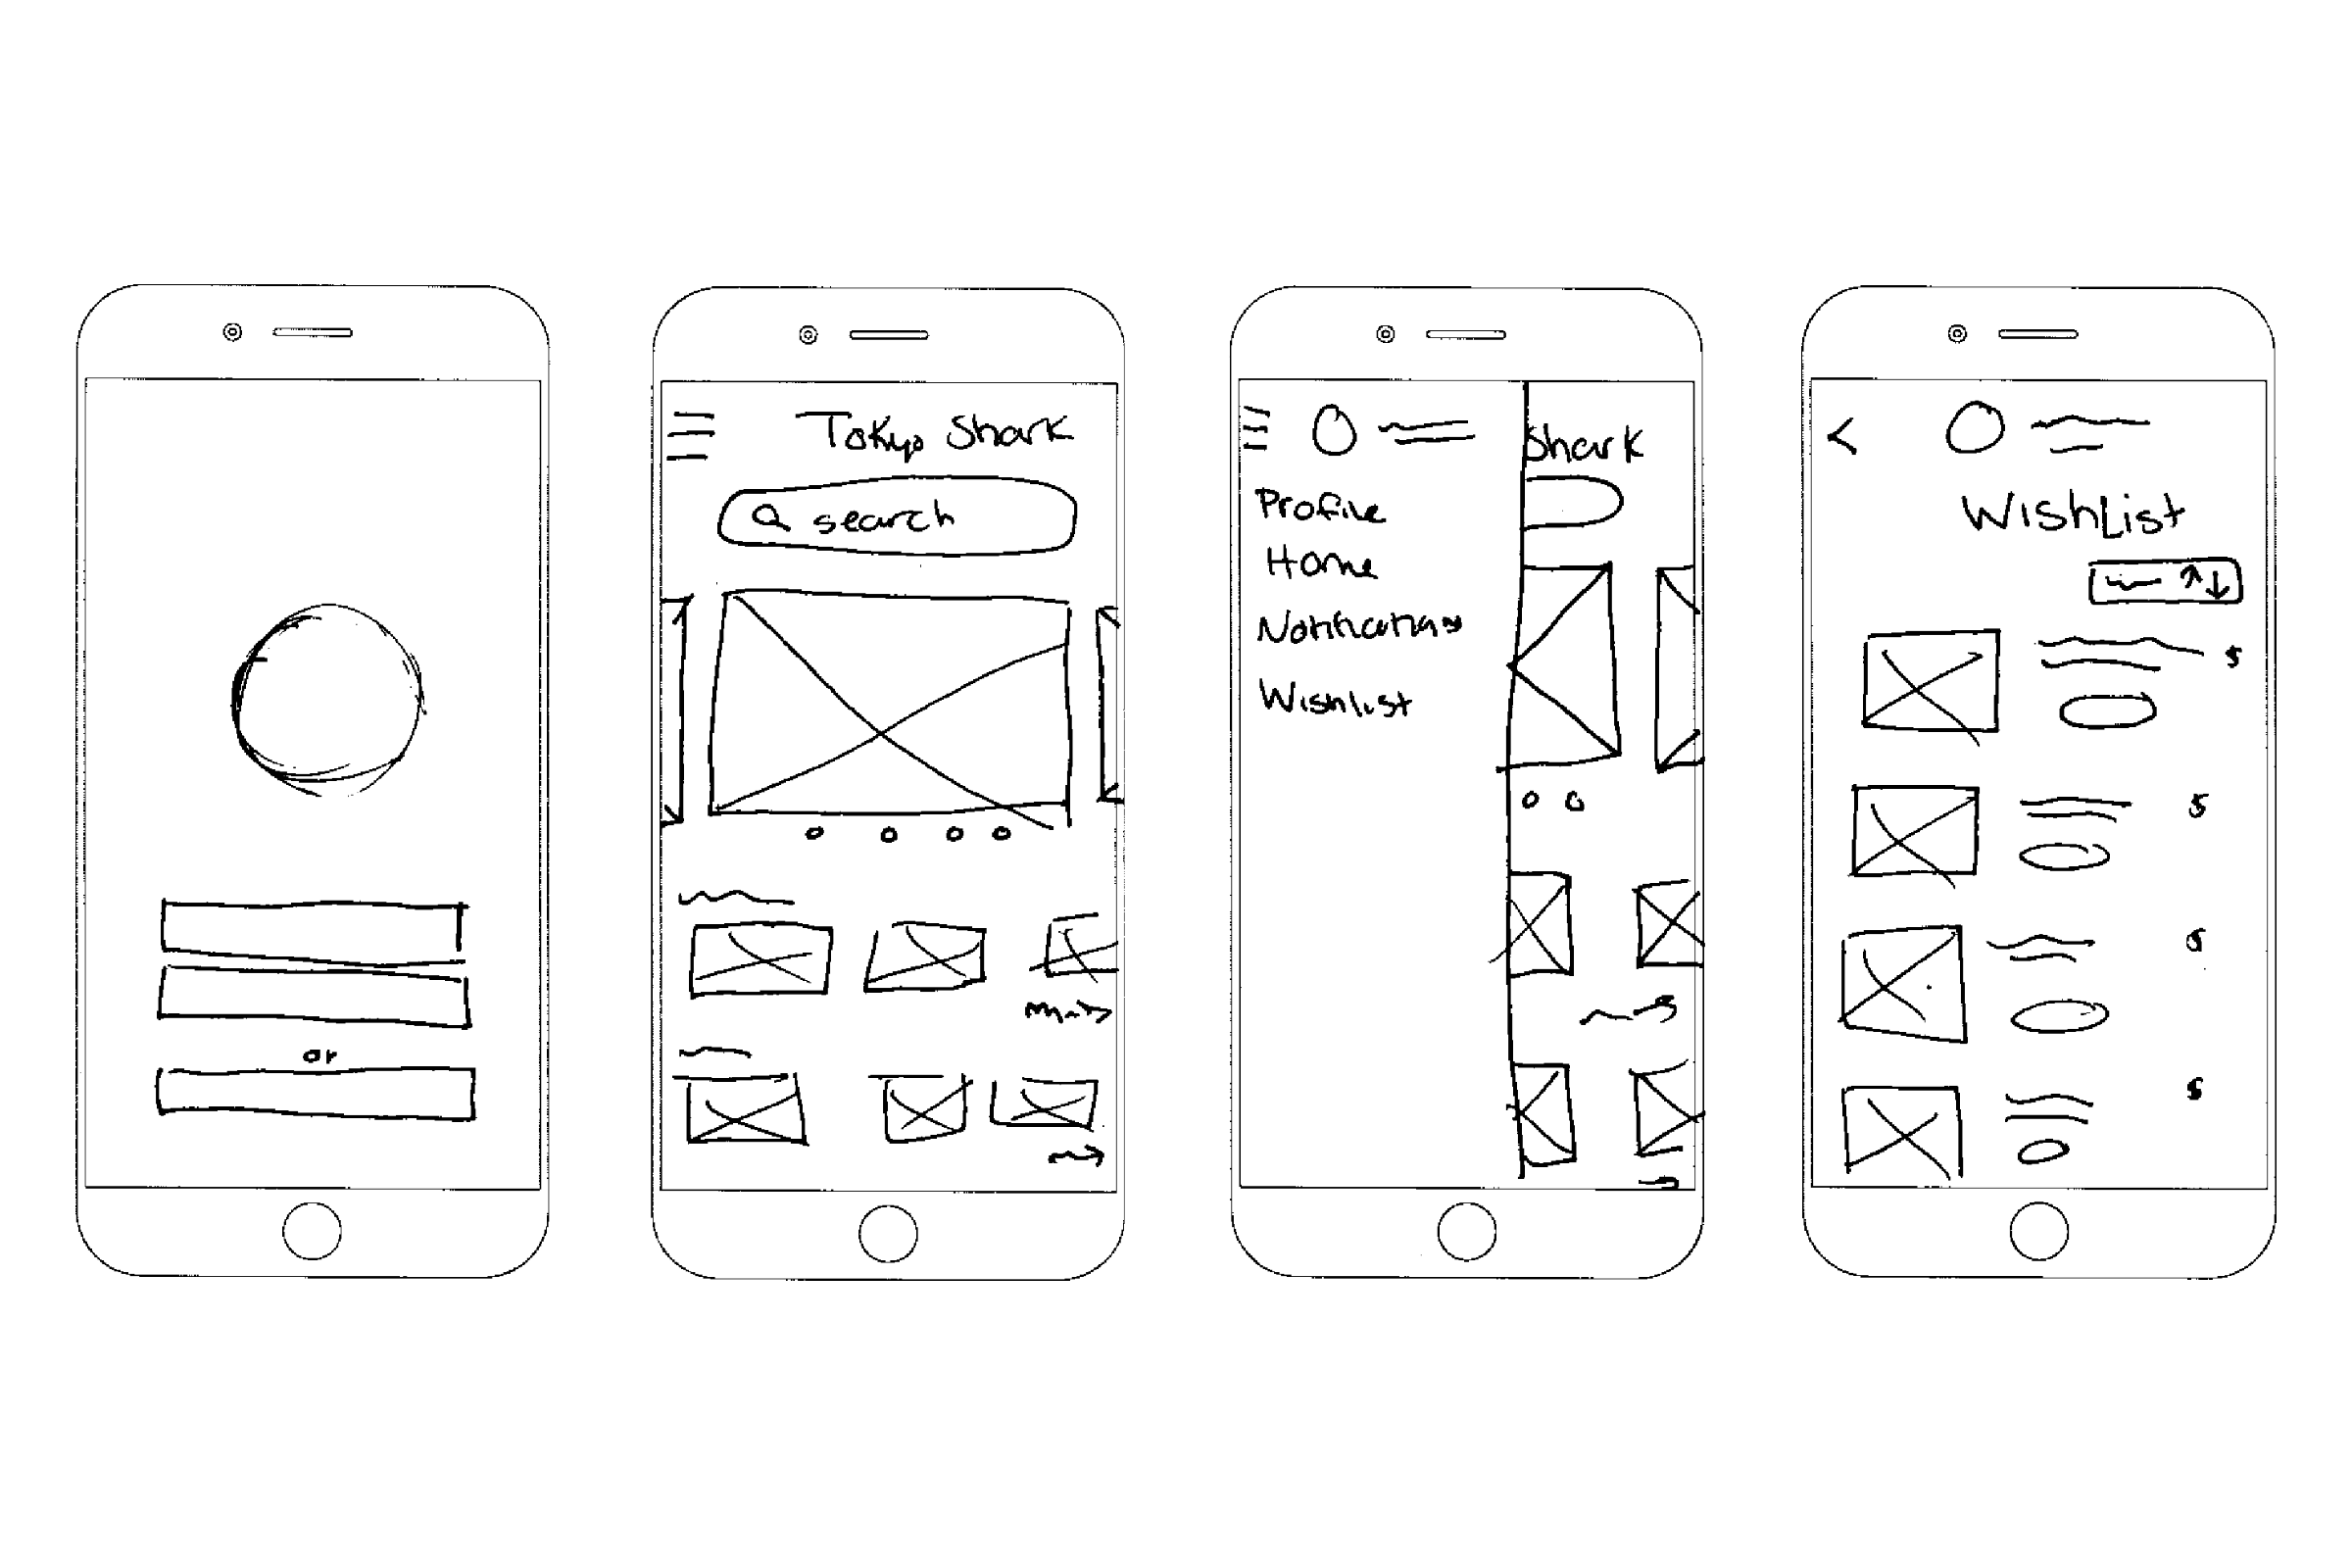 or
Tokyo Shark
search
Shark
Profile
Home
Notifications
Wishlist
WishList
$
$
$
$